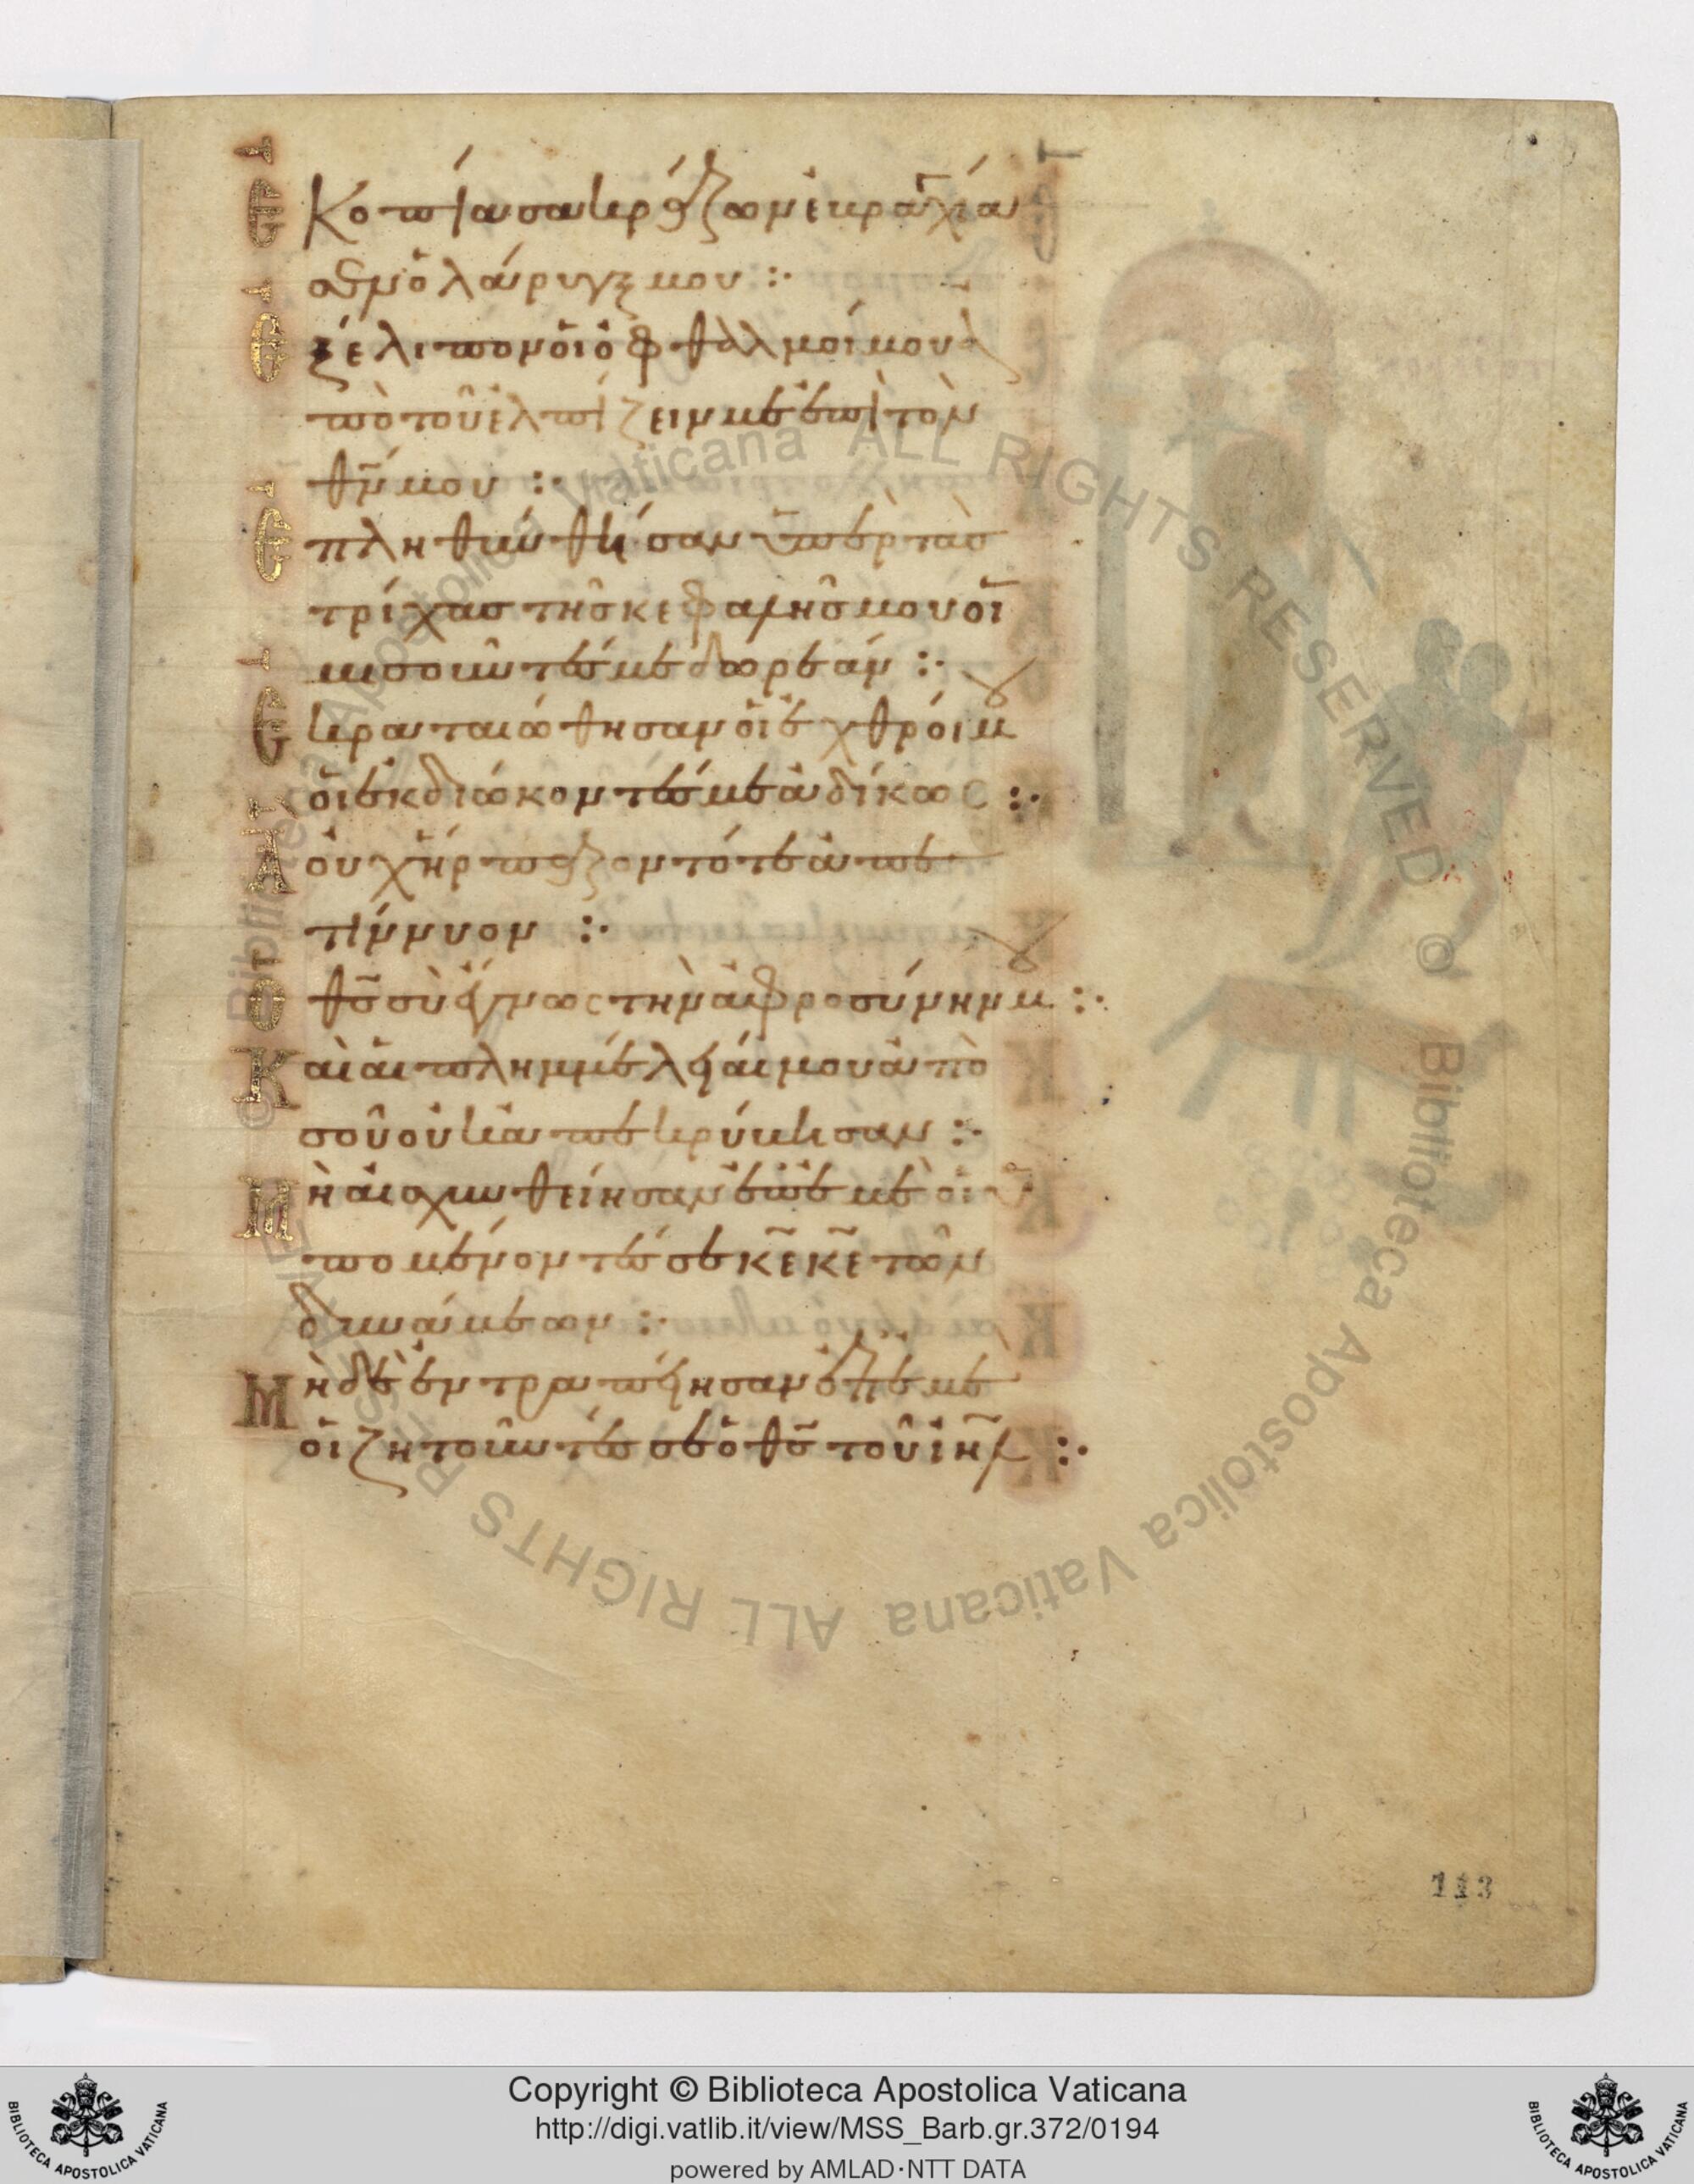 Ἐκοπίασα κράζων ἐβραγχία
σεν ὁ λάρυγξ μου :·
Ἐξέλιπον οἱ ὀφθαλμοί μου ἀ
πὸ τοῦ ἐλπίζειν με ἐπὶ τὸν
θν̄ μου :·
Ἐπληθύνθησαν ὑπὲρ τὰς
τρίχας τῆς κεφαλῆς μου οἱ
μισοῦντές με δωρεάν :·
Ἐκραταιώθησαν οἱ ἐχθροί μου
οἱ ἐκδιώκοντές με ἀδίκως :·
Ἃ οὐχ ἥρπαζον τότε ἀπε
τίννυον :·
Ὁ θς̄ σὺ ἔγνως τὴν ἀφροσύνην μου :·
Καὶ αἱ πλημμέλειαί μου ἀπὸ
σοῦ οὐκ ἀπεκρύβησαν :·
Μὴ αἰσχυνθείησαν ἐπ' ἐμὲ οἱ ὑ
πομένοντές σε κ̄ε κ̄ε τῶν
δυνάμεων :·
Μὴ δὲ ἐντραπείησαν ἐπ' ἐμὲ
οἱ ζητοῦντές σε ὁ θς̄ τοῦ ιηλ̄ :·
113
© Biblioteca Apostolica Vaticana ALL RIGHTS RESERVED © Biblioteca Apostolica Vaticana ALL RIGHTS RESERVED
Copyright © Biblioteca Apostolica Vaticana
http://digi.vatlib.it/view/MSS_Barb.gr.372/0194
powered by AMLAD·NTT DATA
BIBLIOTECA APOSTOLICA VATICANA
BIBLIOTECA APOSTOLICA VATICANA